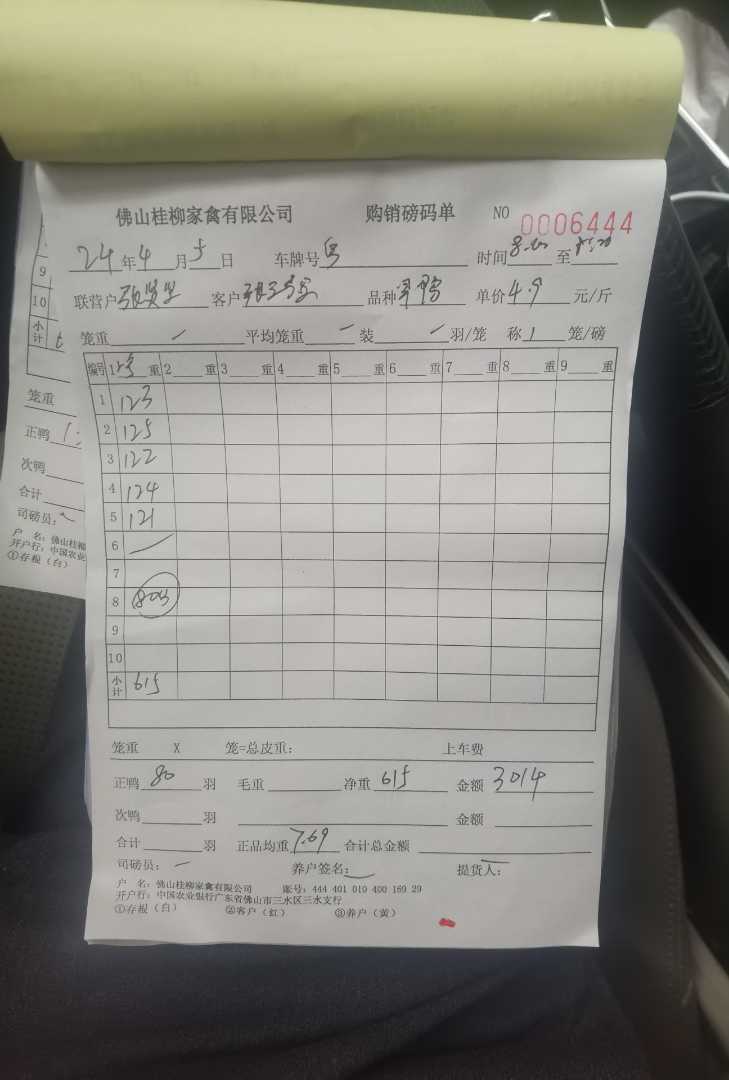 佛山桂柳家禽有限公司 购销磅码单 NO 0006444
24年4月5日 车牌号 粤 时间 至
联营户 客户 品种 单价4.9元/斤
笼重 / 平均笼重 / 装 / 羽/笼 称 1 笼/磅
编号 1 重 2 重 3 重 4 重 5 重 6 重 7 重 8 重 9 重
1 123
2 125
3 122
4 124
5 121
6 /
7
8 80羽
9
10
小计 615
笼重 X 笼=总皮重: 上车费
正鸭 80 羽 毛重 净重 615 金额 3014
次鸭 羽 金额
合计 羽 正品均重 7.69 合计总金额
司磅员: 养户签名: 提货人:
户 名: 佛山桂柳家禽有限公司 账号: 444 401 010 400 169 29
开户行: 中国农业银行广东省佛山市三水区三水支行
①存根(白) ②客户(红) ③养户(黄)
9
10
小计
笼重
正鸭
次鸭
合计
司磅员:
户 名: 佛山桂柳
开户行: 中国农业
①存根(白)